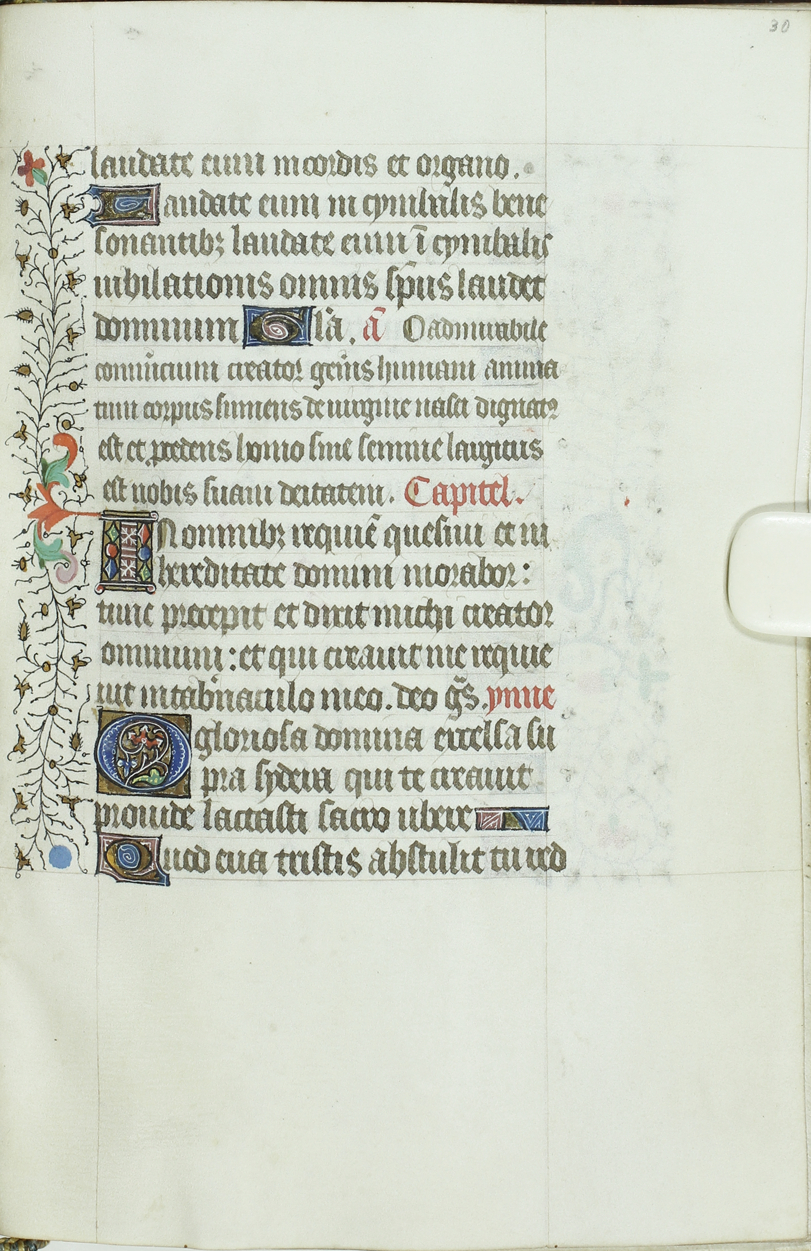 30
laudate eum in cordis et organo.
Laudate eum in cymbalis bene
sonantibꝫ laudate eum ī cymbalis
iubilationis omnis sp̄us laudet
dominum Glā. ā O admirabile
comm̄cium creator gen̄is humani anima
tum corpus sumens de uirgine nasci dignatꝰ
est et p̱cedens homo sine semine largitus
est nobis suam deitatem. Capitel.
IN omnibꝫ requiē quesiui et in
hereditate domini morabor:
tunc precepit et dixit michi creator
omnium: et qui creauit me requie
uit in tab̄naculo meo. deo gr̄s. ymne
O gloriosa domina excelsa su
pra sydera qui te creauit
prouide lactasti sacro ubere
Quod eua tristis abstulit tu red